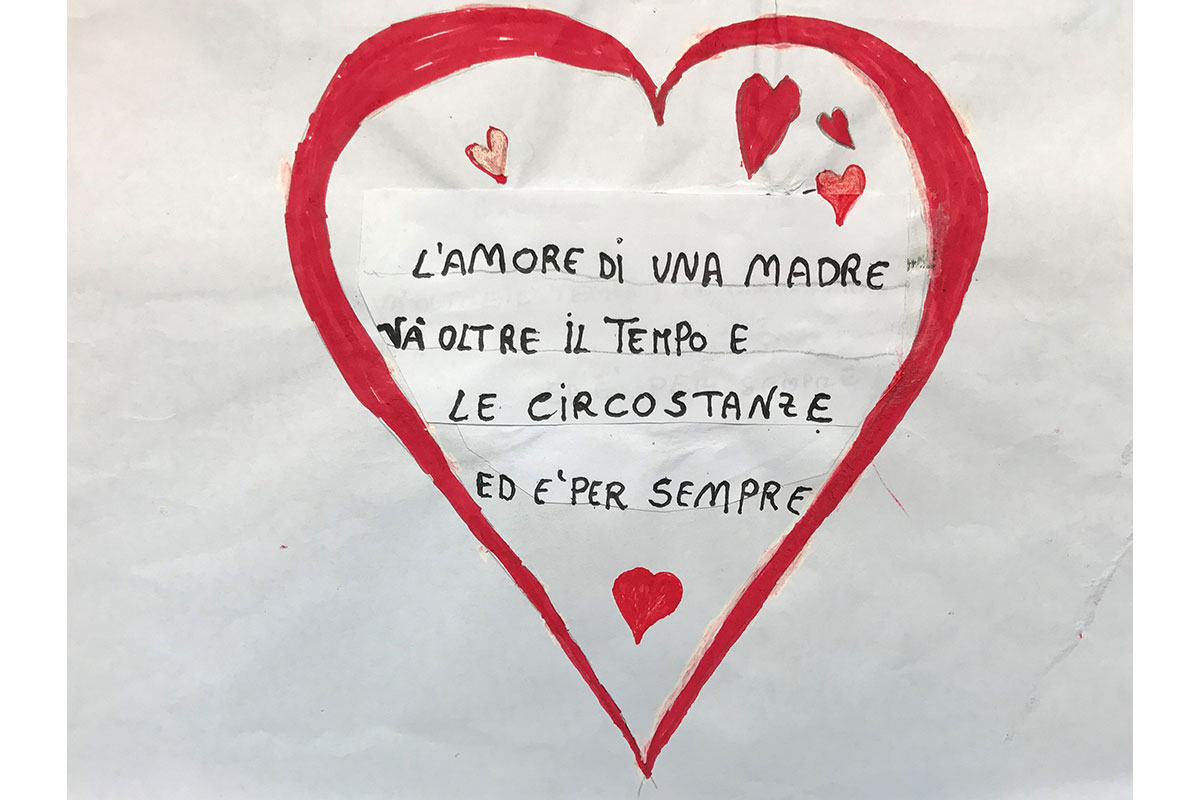 L'AMORE DI UNA MADRE
VÀ OLTRE IL TEMPO E
LE CIRCOSTANZE
ED E' PER SEMPRE